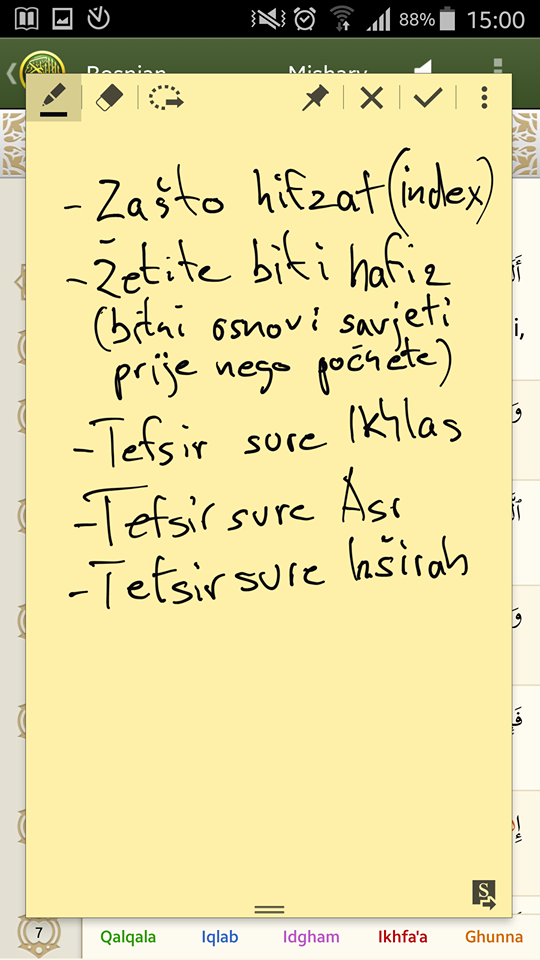 88% 15:00
Bosnian Mishary
- Zašto hifzat (index)
- Žetite biti hafiz
(bitni osnovi savjeti
prije nego počnete)
- Tefsir sure Ikhlas
- Tefsir sure Asr
- Tefsir sure Inširah
S
7 Qalqala Iqlab Idgham Ikhfa'a Ghunna